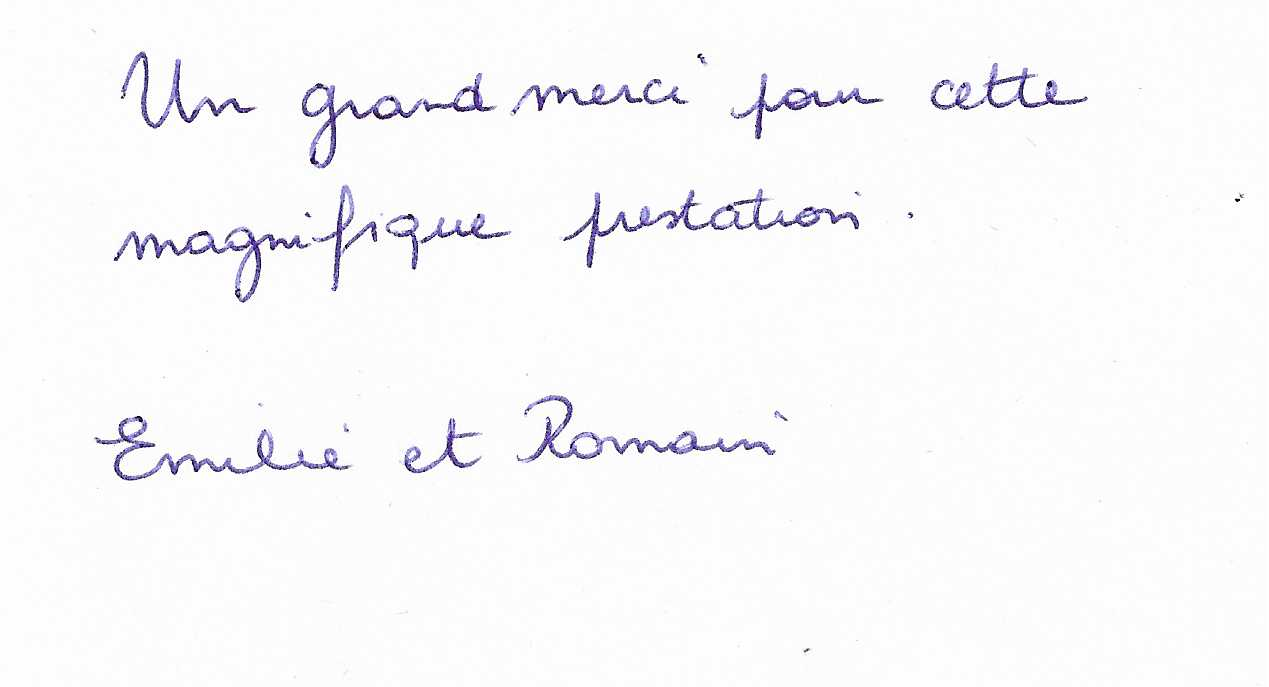 Un grand merci pour cette
magnifique prestation.
Emilie et Romain